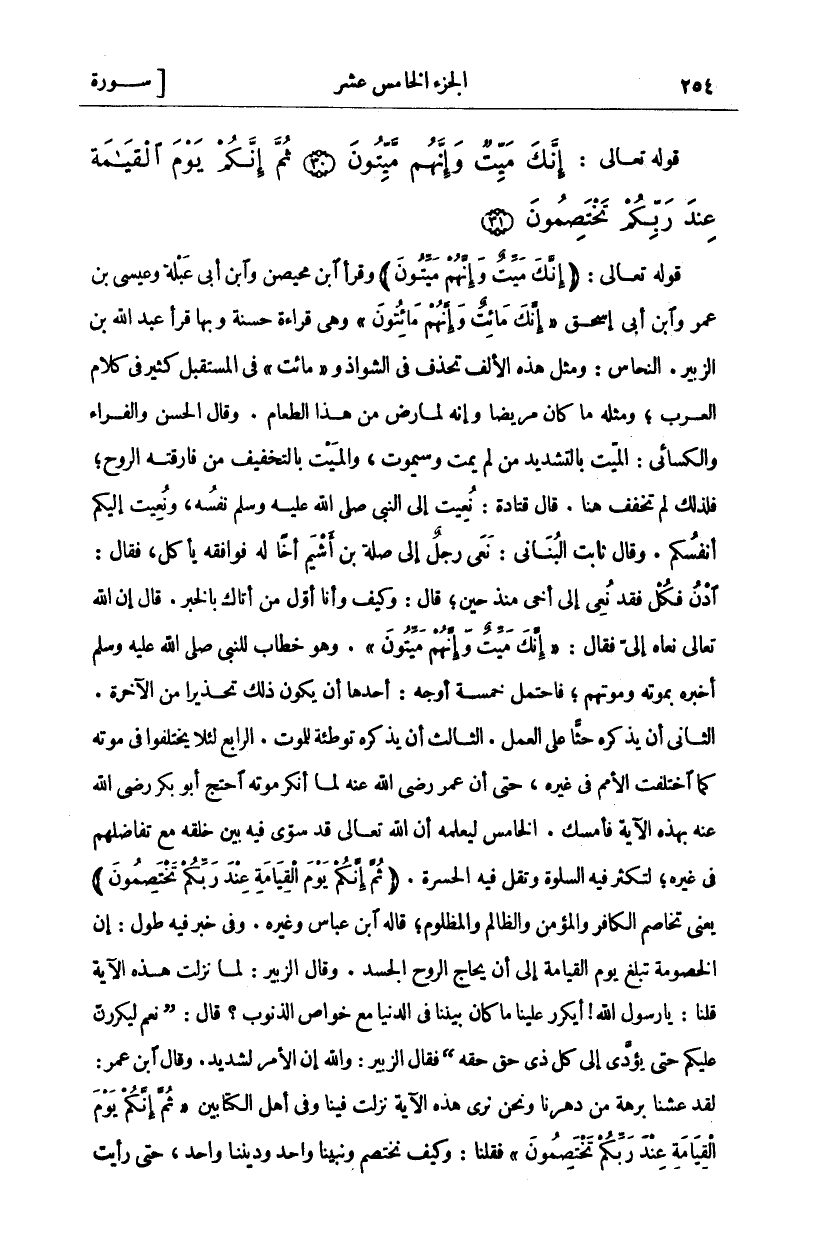 ٢٥٤ الجزء الخامس عشر [ ســورة
قوله تعـالى : إِنَّكَ مَيِّتٌ وَإِنَّهُم مَّيِّتُونَ ﴿٣٠﴾ ثُمَّ إِنَّكُمْ يَوْمَ ٱلْقِيَـٰمَةِ
عِندَ رَبِّكُمْ تَخْتَصِمُونَ ﴿٣١﴾
قوله تعـالى : ﴿ إِنَّكَ مَيِّتٌ وَإِنَّهُمْ مَيِّتُونَ ﴾ وقرأ آبن محيصن وآبن أبى عَبْلة وعيسى بن
عمر وآبن أبى إسحـق « إِنَّكَ مَائِتٌ وَإِنَّهُمْ مَائِتُونَ » وهى قراءة حسنة وبها قرأ عبد الله بن
الزبير . النحاس : ومثل هذه الألف تحذف فى الشواذ و « مائت » فى المستقبل كثير فى كلام
العـرب ؛ ومثله ما كان مريضا وإنه لمـارض من هـذا الطعام . وقال الحسن والفـراء
والكسائى : الميّت بالتشديد من لم يمت وسيموت ، والمَيْت بالتخفيف من فارقتـه الروح ؛
فلذلك لم تخفف هنا . قال قتادة : نُعِيت إلى النبى صلى الله عليـه وسلم نفسُه ، ونُعِيت إليكم
أنفسُكم . وقال ثابت البُنَانى : نَعَى رجلٌ إلى صلة بن أَشْيَم أخًا له فوافقه يأكل ، فقال :
آدْنُ فكُلْ فقد نُعِى إلى أخى منذ حين ؛ قال : وكيف وأنا أوّل من أتاك بالخبر . قال إن الله
تعالى نعاه إلىّ فقال : « إِنَّكَ مَيِّتٌ وَإِنَّهُمْ مَيِّتُونَ » . وهو خطاب للنبى صلى الله عليه وسلم
أخبره بموته وموتهم ؛ فاحتمل خمسـة أوجه : أحدها أن يكون ذلك تحـذيرا من الآخرة .
الثـانى أن يذكره حثًّا على العمل . الثـالث أن يذكره توطئة للموت . الرابع لئلا يختلفوا فى موته
كما آختلفت الأمم فى غيره ، حتى أن عمر رضى الله عنه لمـا أنكر موته آحتج أبو بكر رضى الله
عنه بهذه الآية فأمسك . الخامس ليعلمه أن الله تعـالى قد سوّى فيه بين خلقه مع تفاضلهم
فى غيره ؛ لتكثر فيه السلوة وتقل فيه الحسرة . ﴿ ثُمَّ إِنَّكُمْ يَوْمَ الْقِيَامَةِ عِنْدَ رَبِّكُمْ تَخْتَصِمُونَ ﴾
يعنى تخاصم الكافر والمؤمن والظالم والمظلوم ؛ قاله آبن عباس وغيره . وفى خبر فيه طول : إن
الخصومة تبلغ يوم القيامة إلى أن يحاج الروح الجسد . وقال الزبير : لمـا نزلت هـذه الآية
قلنا : يارسول الله ! أيكرر علينا ما كان بيننا فى الدنيا مع خواص الذنوب ؟ قال : ” نعم ليكررنّ
عليكم حتى يؤدَّى إلى كل ذى حق حقه “ فقال الزبير : والله إن الأمر لشديد . وقال آبن عمر :
لقد عشنا برهة من دهرنا ونحن نرى هذه الآية نزلت فينا وفى أهل الكتابين « ثُمَّ إِنَّكُمْ يَوْمَ
الْقِيَامَةِ عِنْدَ رَبِّكُمْ تَخْتَصِمُونَ » فقلنا : وكيف نختصم ونبينا واحد وديننـا واحد ، حتى رأيت